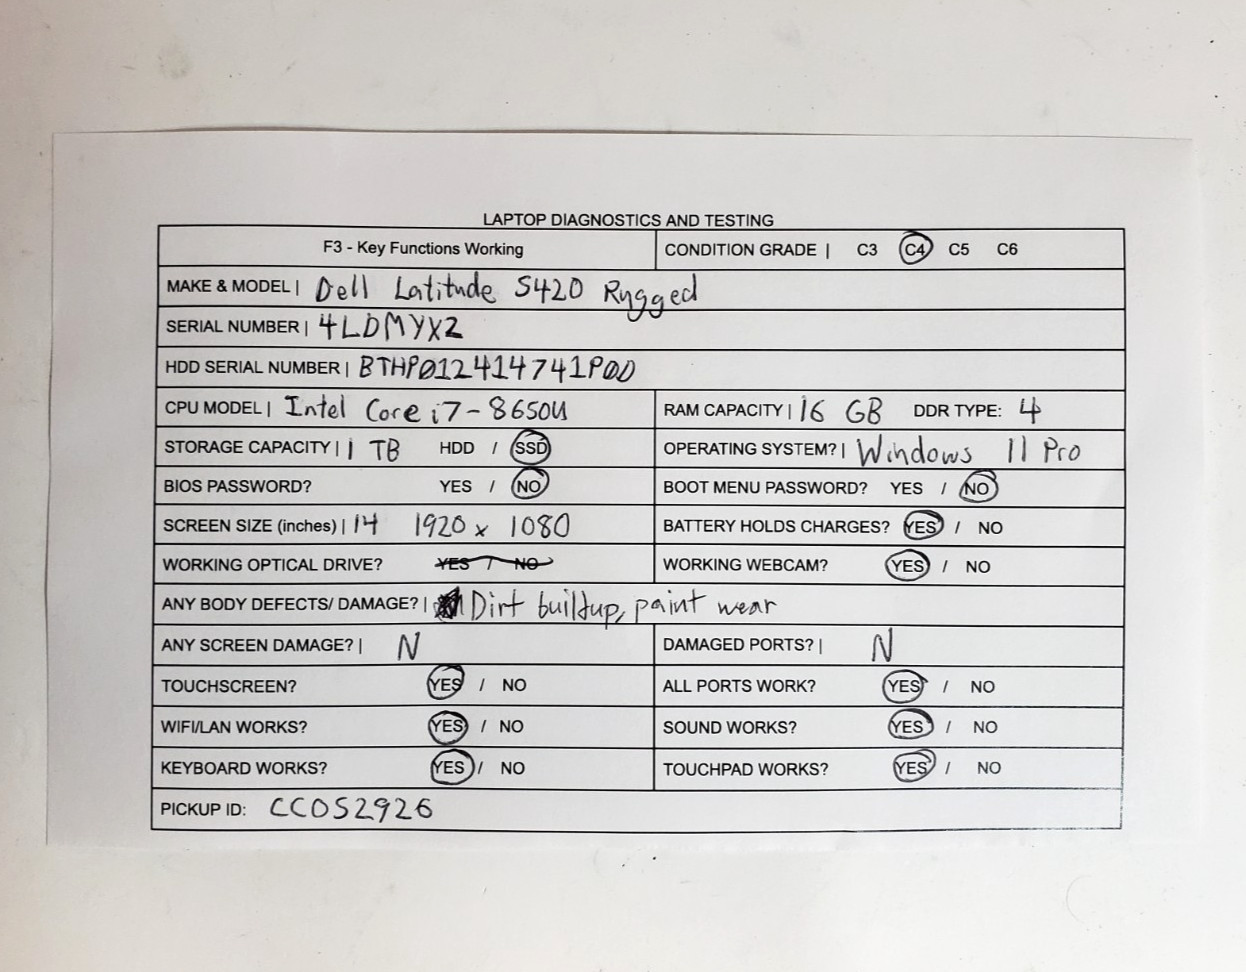 LAPTOP DIAGNOSTICS AND TESTING
F3 - Key Functions Working CONDITION GRADE | C3 C4 C5 C6
MAKE & MODEL | Dell Latitude 5420 Rugged
SERIAL NUMBER | 4LDMYX2
HDD SERIAL NUMBER | BTHP012414741P0D
CPU MODEL | Intel Core i7-8650U RAM CAPACITY | 16 GB DDR TYPE: 4
STORAGE CAPACITY | 1 TB HDD / SSD OPERATING SYSTEM? | Windows 11 Pro
BIOS PASSWORD? YES / NO BOOT MENU PASSWORD? YES / NO
SCREEN SIZE (inches) | 14 1920 x 1080 BATTERY HOLDS CHARGES? YES / NO
WORKING OPTICAL DRIVE? YES / NO WORKING WEBCAM? YES / NO
ANY BODY DEFECTS/ DAMAGE? | Dirt buildup, paint wear
ANY SCREEN DAMAGE? | N DAMAGED PORTS? | N
TOUCHSCREEN? YES / NO ALL PORTS WORK? YES / NO
WIFI/LAN WORKS? YES / NO SOUND WORKS? YES / NO
KEYBOARD WORKS? YES / NO TOUCHPAD WORKS? YES / NO
PICKUP ID: CCOS2926